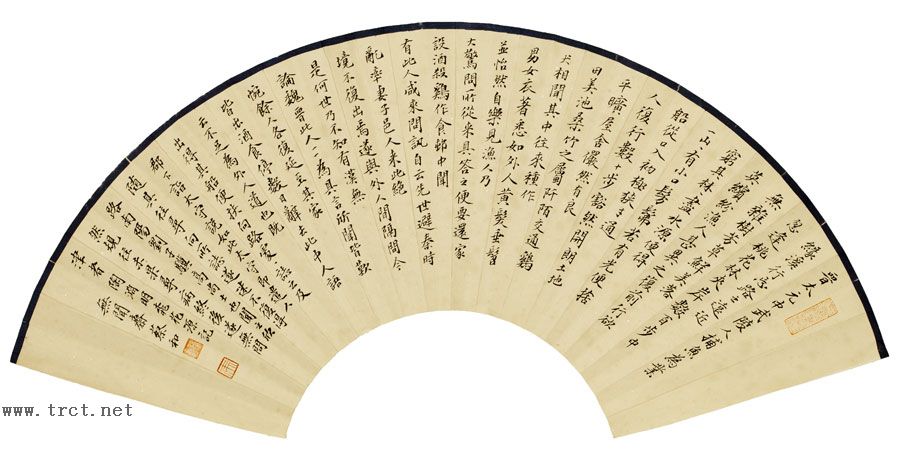 晉太元中武陵人捕魚為業
緣溪行忘路之遠近
忽逢桃花林夾岸數百步中
無雜樹芳草鮮美落
英繽紛漁人甚異之復前行欲
窮其林林盡水源便得
一山山有小口髣髴若有光便捨
船從口入初極狹纔通
人復行數十步豁然開朗土地
平曠屋舍儼然有良
田美池桑竹之屬阡陌交通鷄
犬相聞其中往來種作
男女衣著悉如外人黃髮垂髫
並怡然自樂見漁人乃
大驚問所從來具答之便要還家
設酒殺鷄作食邨中聞
有此人咸來問訊自云先世避秦時
亂率妻子邑人來此絕
境不復出焉遂與外人間隔問今
是何世乃不知有漢無
論魏晉此人一一為具言所聞皆歎
惋餘人各復延至其家
皆出酒食停數日辭去此中人語
云不足為外人道也既
出得其船便扶向路處處誌之及
郡下詣太守說如此太守即遣人
隨其往尋向所誌遂迷不復得
路南陽劉子驥高尚士也聞之欣
然規往未果尋病終後遂無問
津者 陶淵明桃花源記
無聞齋蔡和
www.trct.net